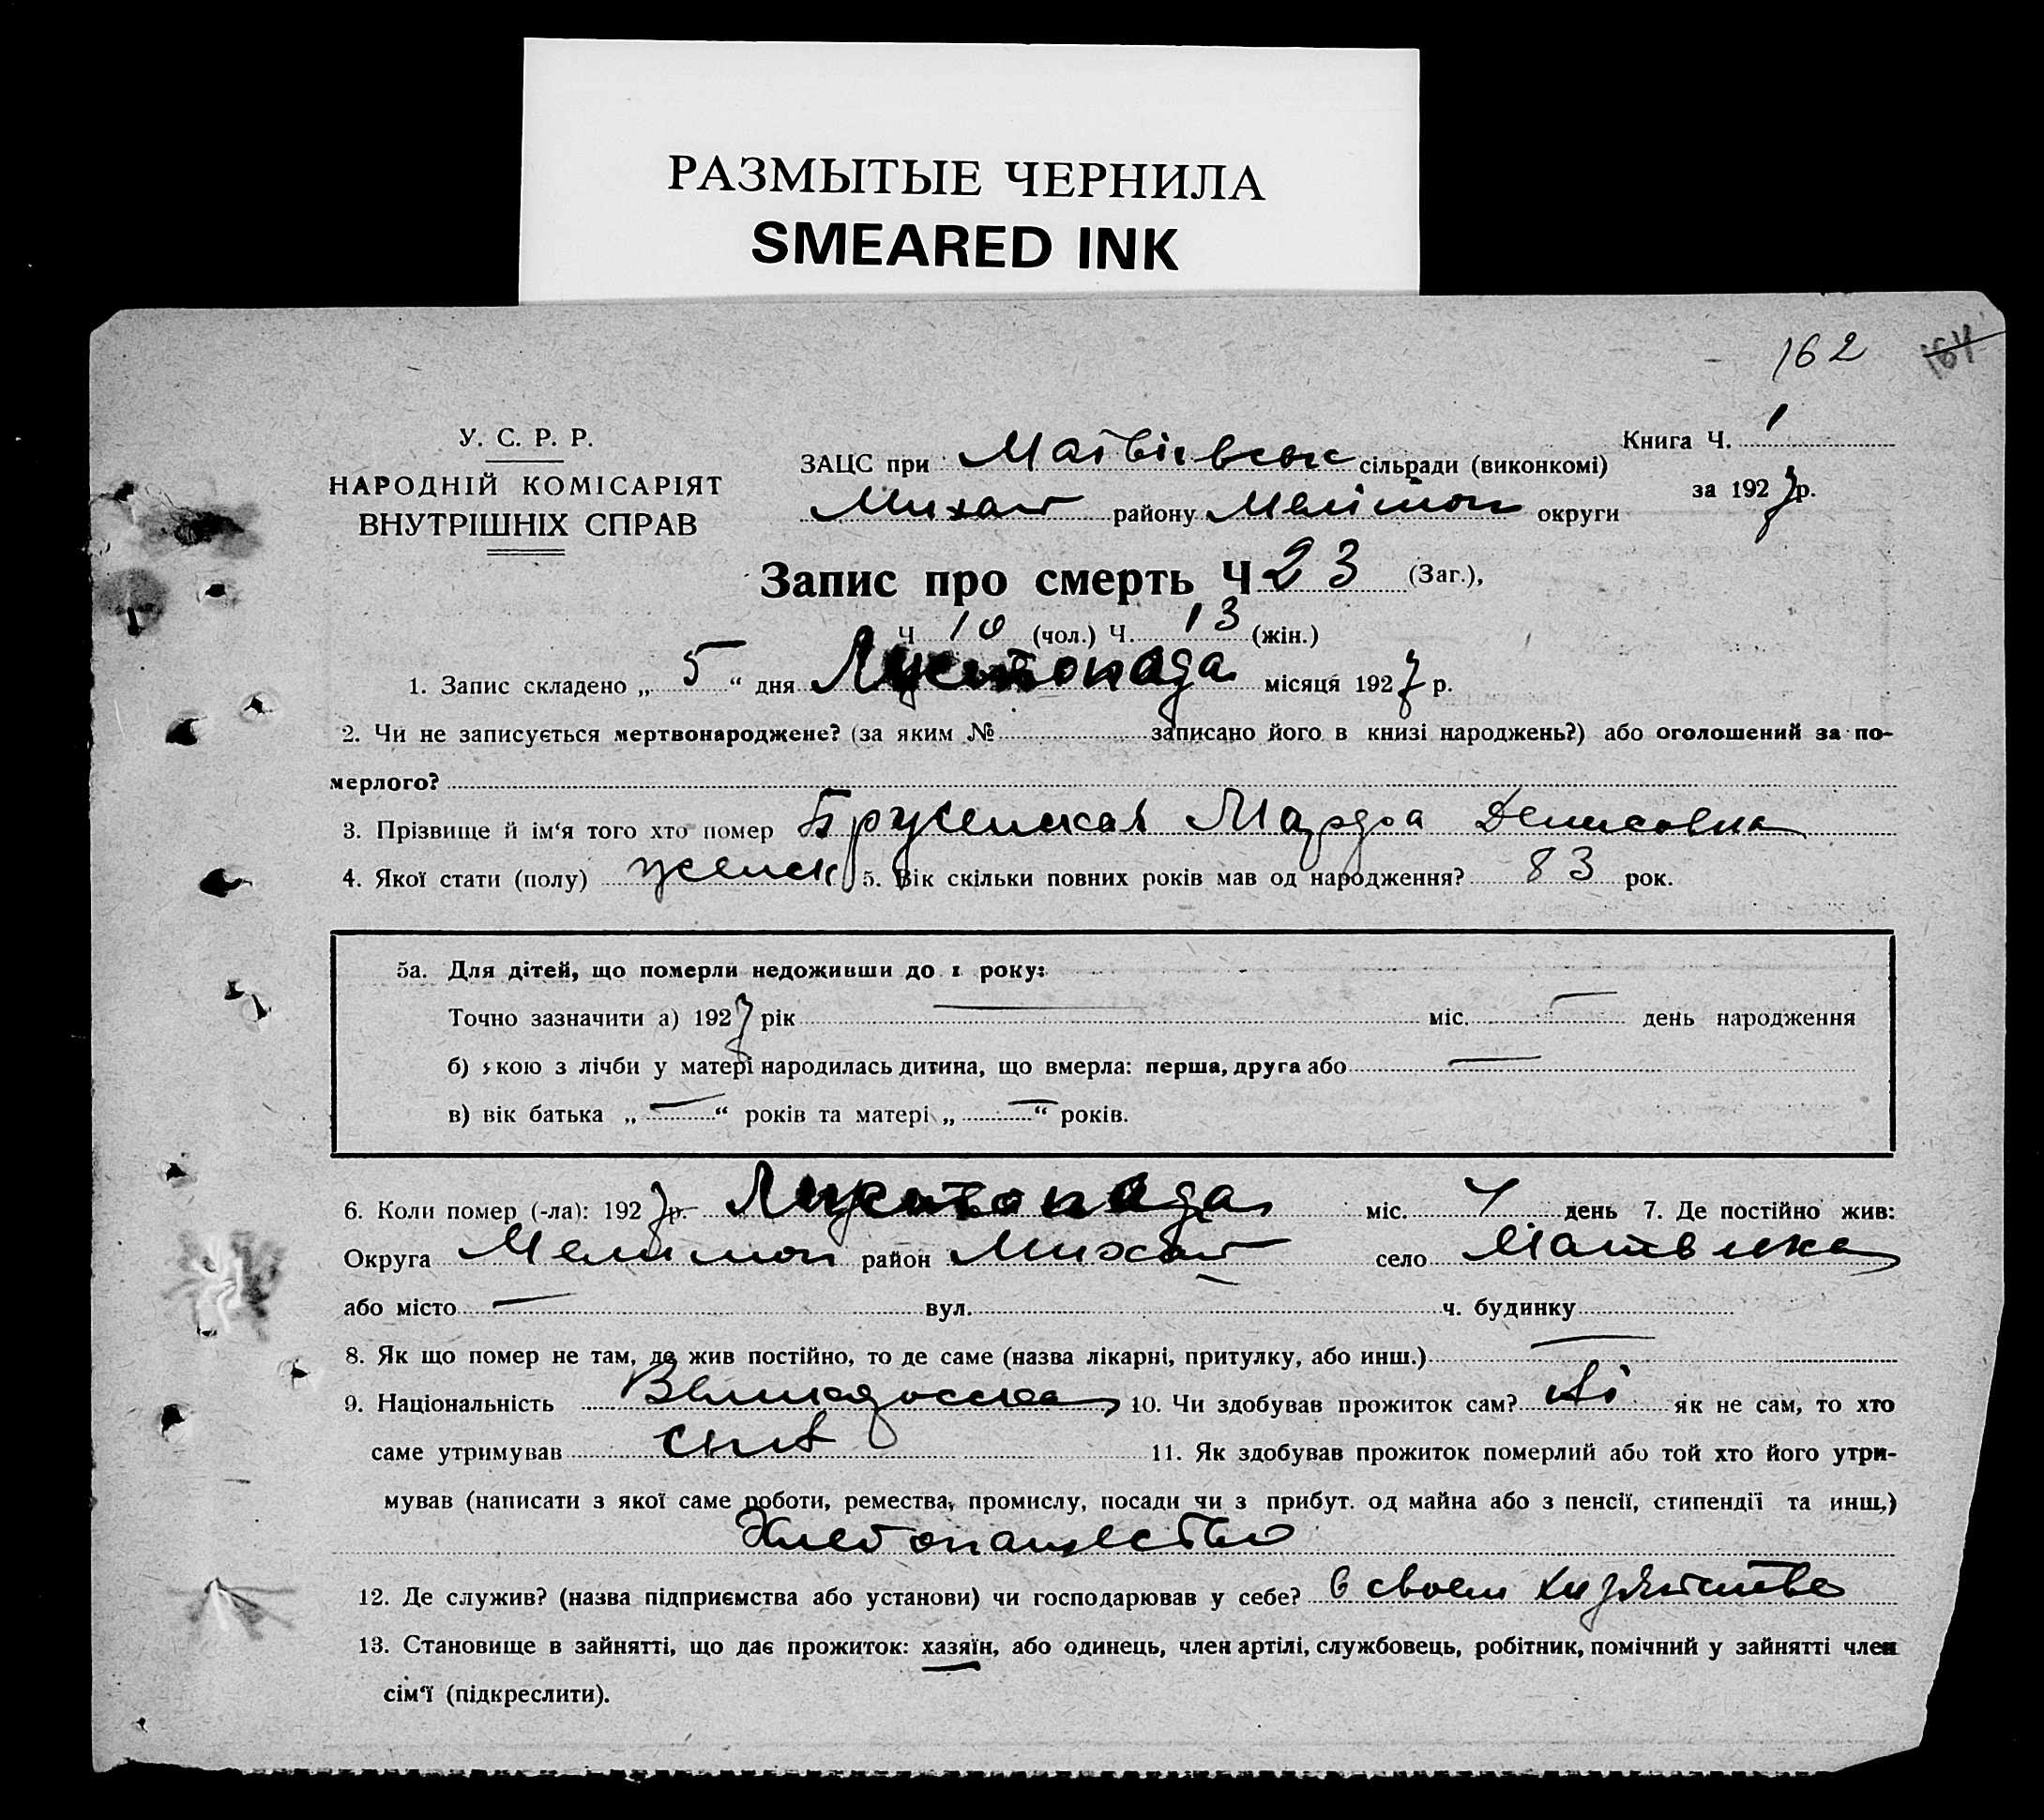 РАЗМЫТЫЕ ЧЕРНИЛА
SMEARED INK
162 164
У. С. Р. Р.
НАРОДНІЙ КОМІСАРІЯТ
ВНУТРІШНІХ СПРАВ
Книга Ч. 1
за 1927 р.
ЗАЦС при Матвієвськ сільради (виконкомі)
Михай району Меліто́п округи
Запис про смерть Ч 23 (Заг.),
Ч 10 (чол.) Ч. 13 (жін.)
1. Запис складено „ 5 “ дня Листопада місяця 1927 р.
2. Чи не записується мертвонароджене? (за яким № записано його в книзі народжень?) або оголошений за по-
мерлого?
3. Прізвище й ім‘я того хто помер Марфа Денисовна
4. Якої стати (полу) женск 5. Вік скільки повних років мав од народження? 83 рок.
5а. Для дітей, що померли недоживши до 1 року:
Точно зазначити а) 1927 рік — міс. — день народження
б) якою з лічби у матері народилась дитина, що вмерла: перша, друга або —
в) вік батька „ — “ років та матері „ — “ років.
6. Коли помер (-ла): 1927 р. Листопада міс. 4 день 7. Де постійно жив:
Округа Мелитоп район Михай село
або місто — вул. — ч. будинку
8. Як що помер не там, де жив постійно, то де саме (назва лікарні, притулку, або инш.) —
9. Національність 10. Чи здобував прожиток сам? ні як не сам, то хто
саме утримував сын 11. Як здобував прожиток померлий або той хто його утри-
мував (написати з якої саме роботи, ремества, промислу, посади чи з прибут. од майна або з пенсії, стипендії та инш.)
Хлебопашество
12. Де служив? (назва підприємства або установи) чи господарював у себе? в своем
13. Становище в зайнятті, що дає прожиток: хазяїн, або одинець, член артілі, службовець, робітник, помічний у зайнятті член
сім‘ї (підкреслити).